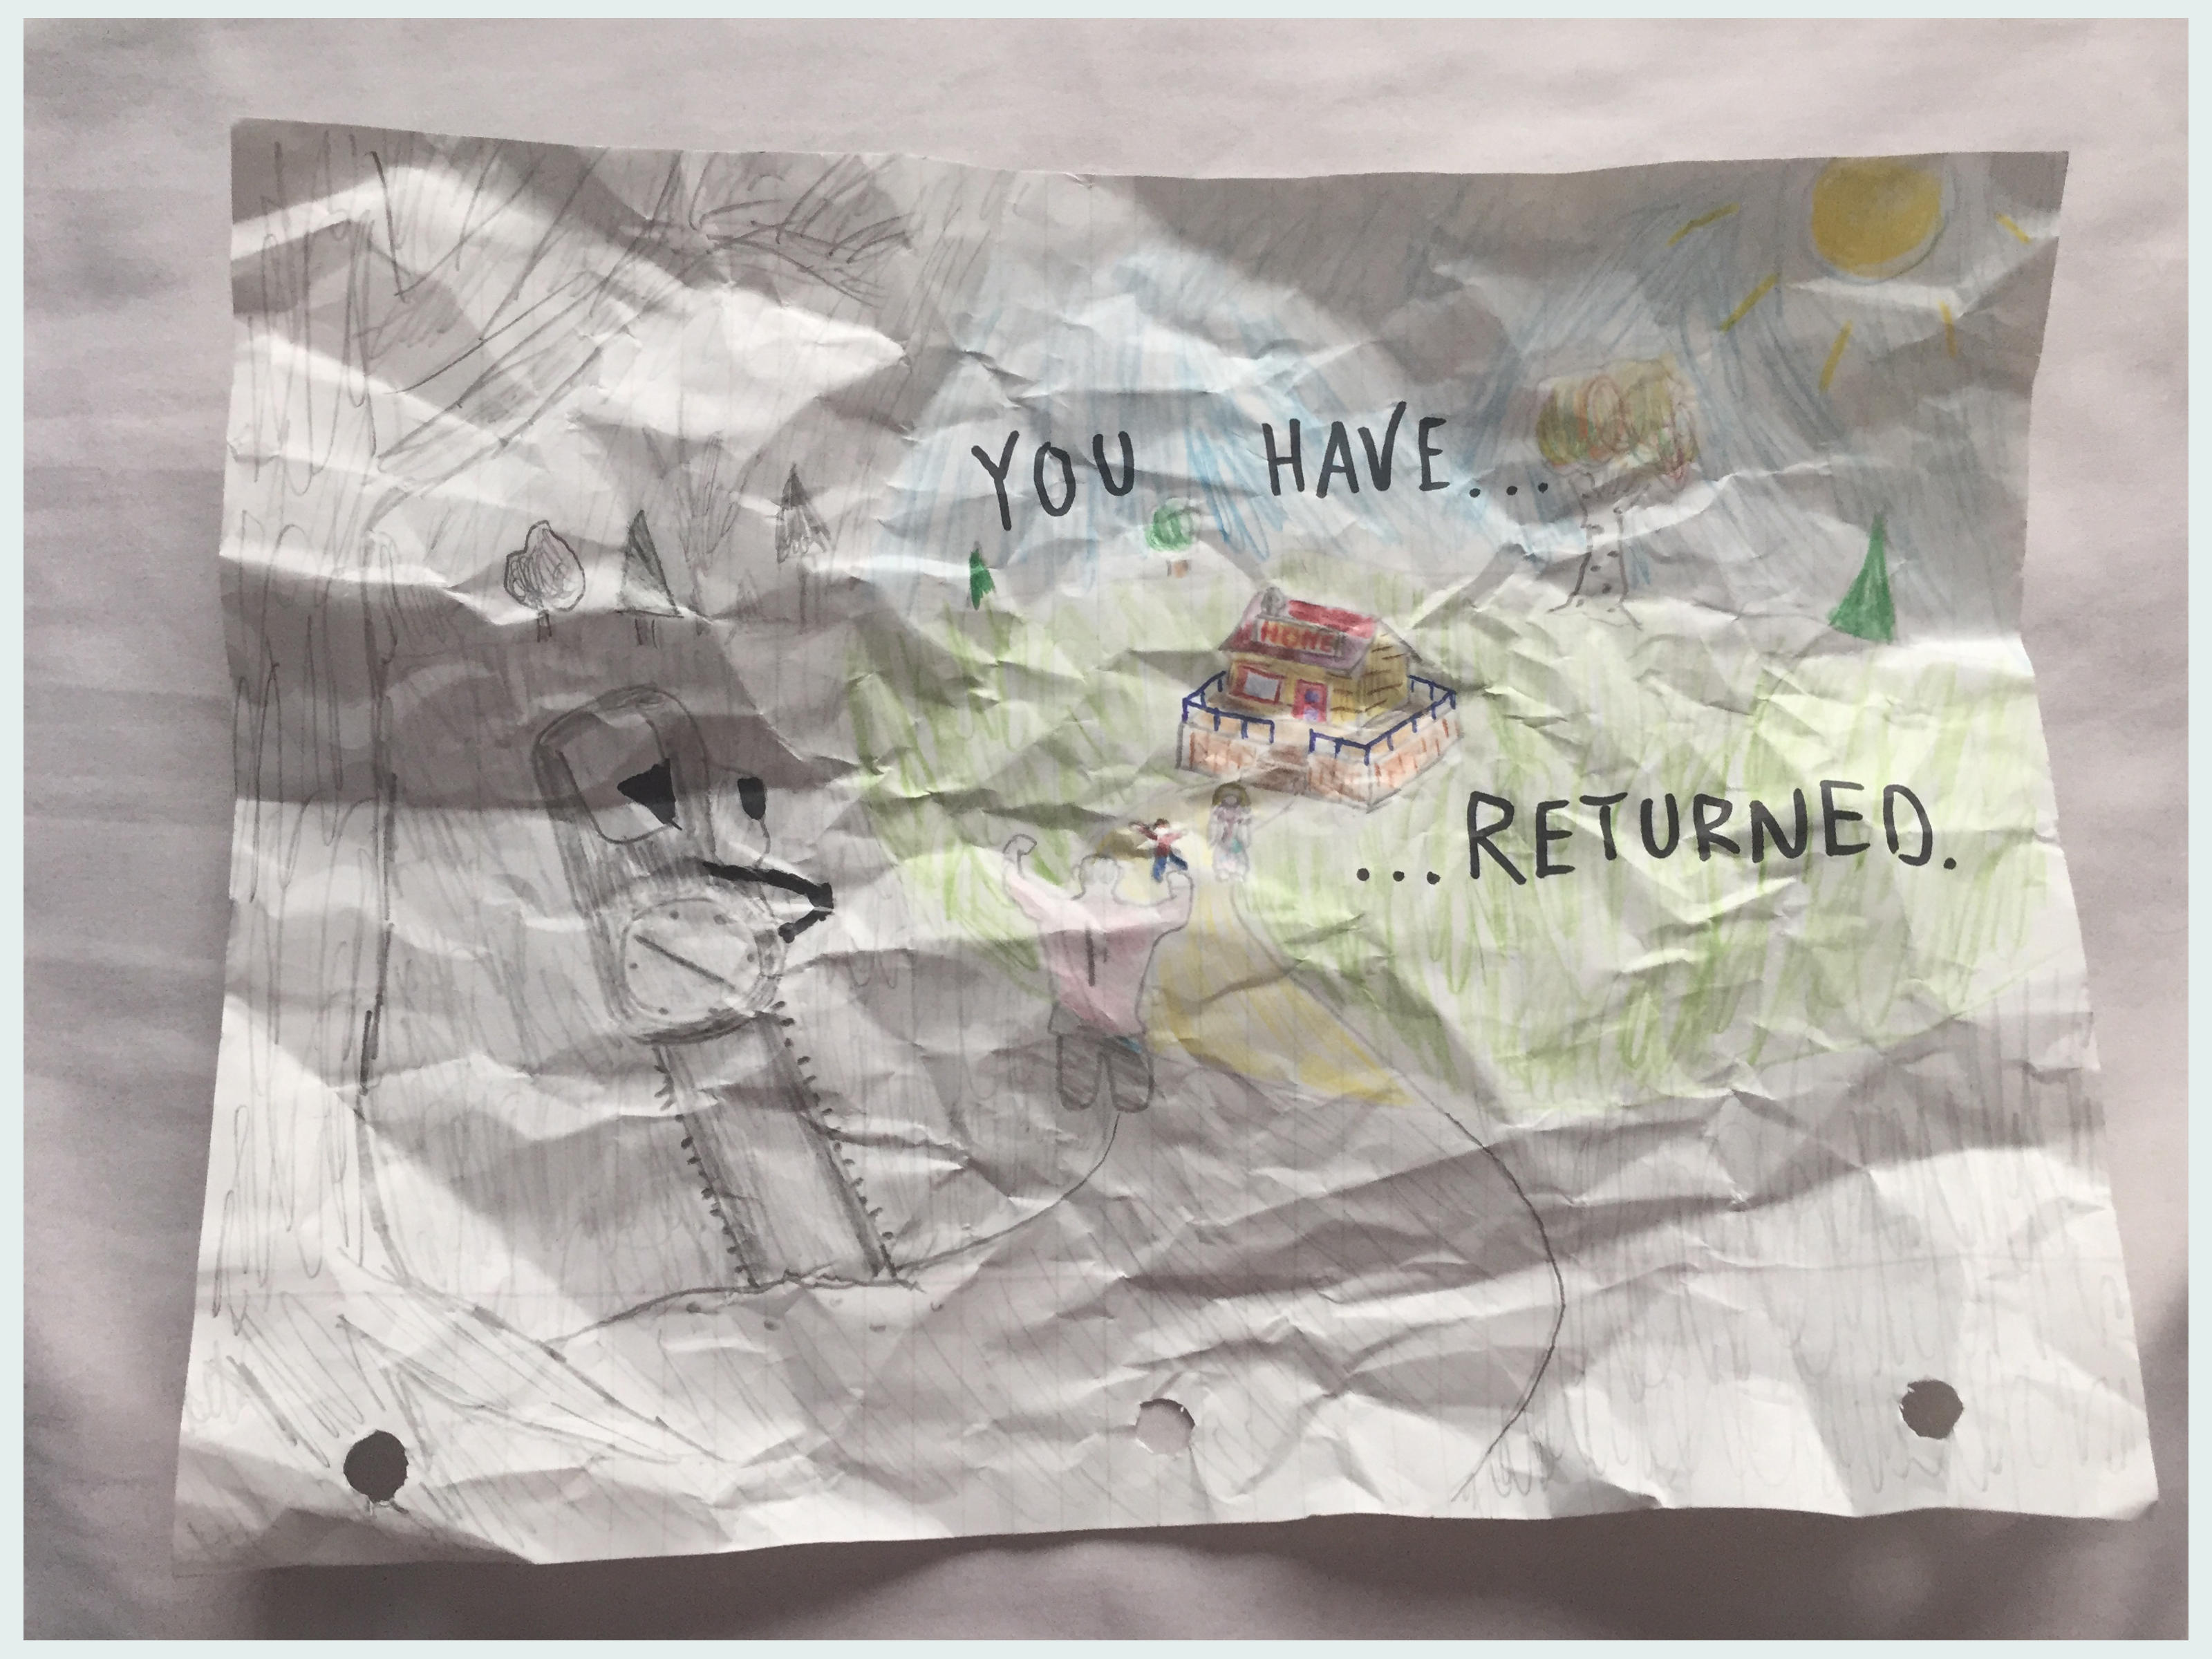 YOU HAVE...
HOME
...RETURNED.